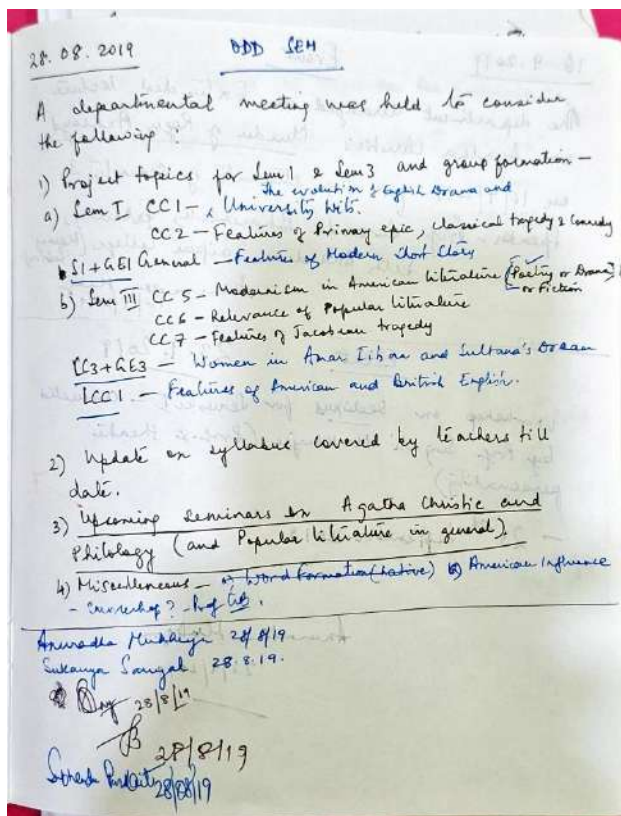 28.08.2019 ODD SEM
A departmental meeting was held to consider
the following :
1) Project topics for Sem 1 & Sem 3 and group formation —
a) Sem I CC1 — The evolution of English Drama and
University Wits.
CC2 — Features of Primary epic, classical tragedy & Comedy
GE1 General — Features of Modern Short Story
b) Sem III CC5 — Modernism in American literature (Poetry or Drama)
or Fiction
CC6 — Relevance of Popular literature
CC7 — Features of Jacobean tragedy
CC3+GE3 — Women in Amar Jiban and Sultana's Dream
LCC1 — Features of American and British English.
2) Update on syllabus covered by teachers till
date.
3) Upcoming Seminars on Agatha Christie and
Philology (and Popular literature in general).
4) Miscellaneous — a) Word Formation (Native) b) American Influence
— ? — Prof
Anuradha Mukherji 28/8/19
Sukanya Sanyal 28.8.19.
28/8/19
28/8/19
28/08/19